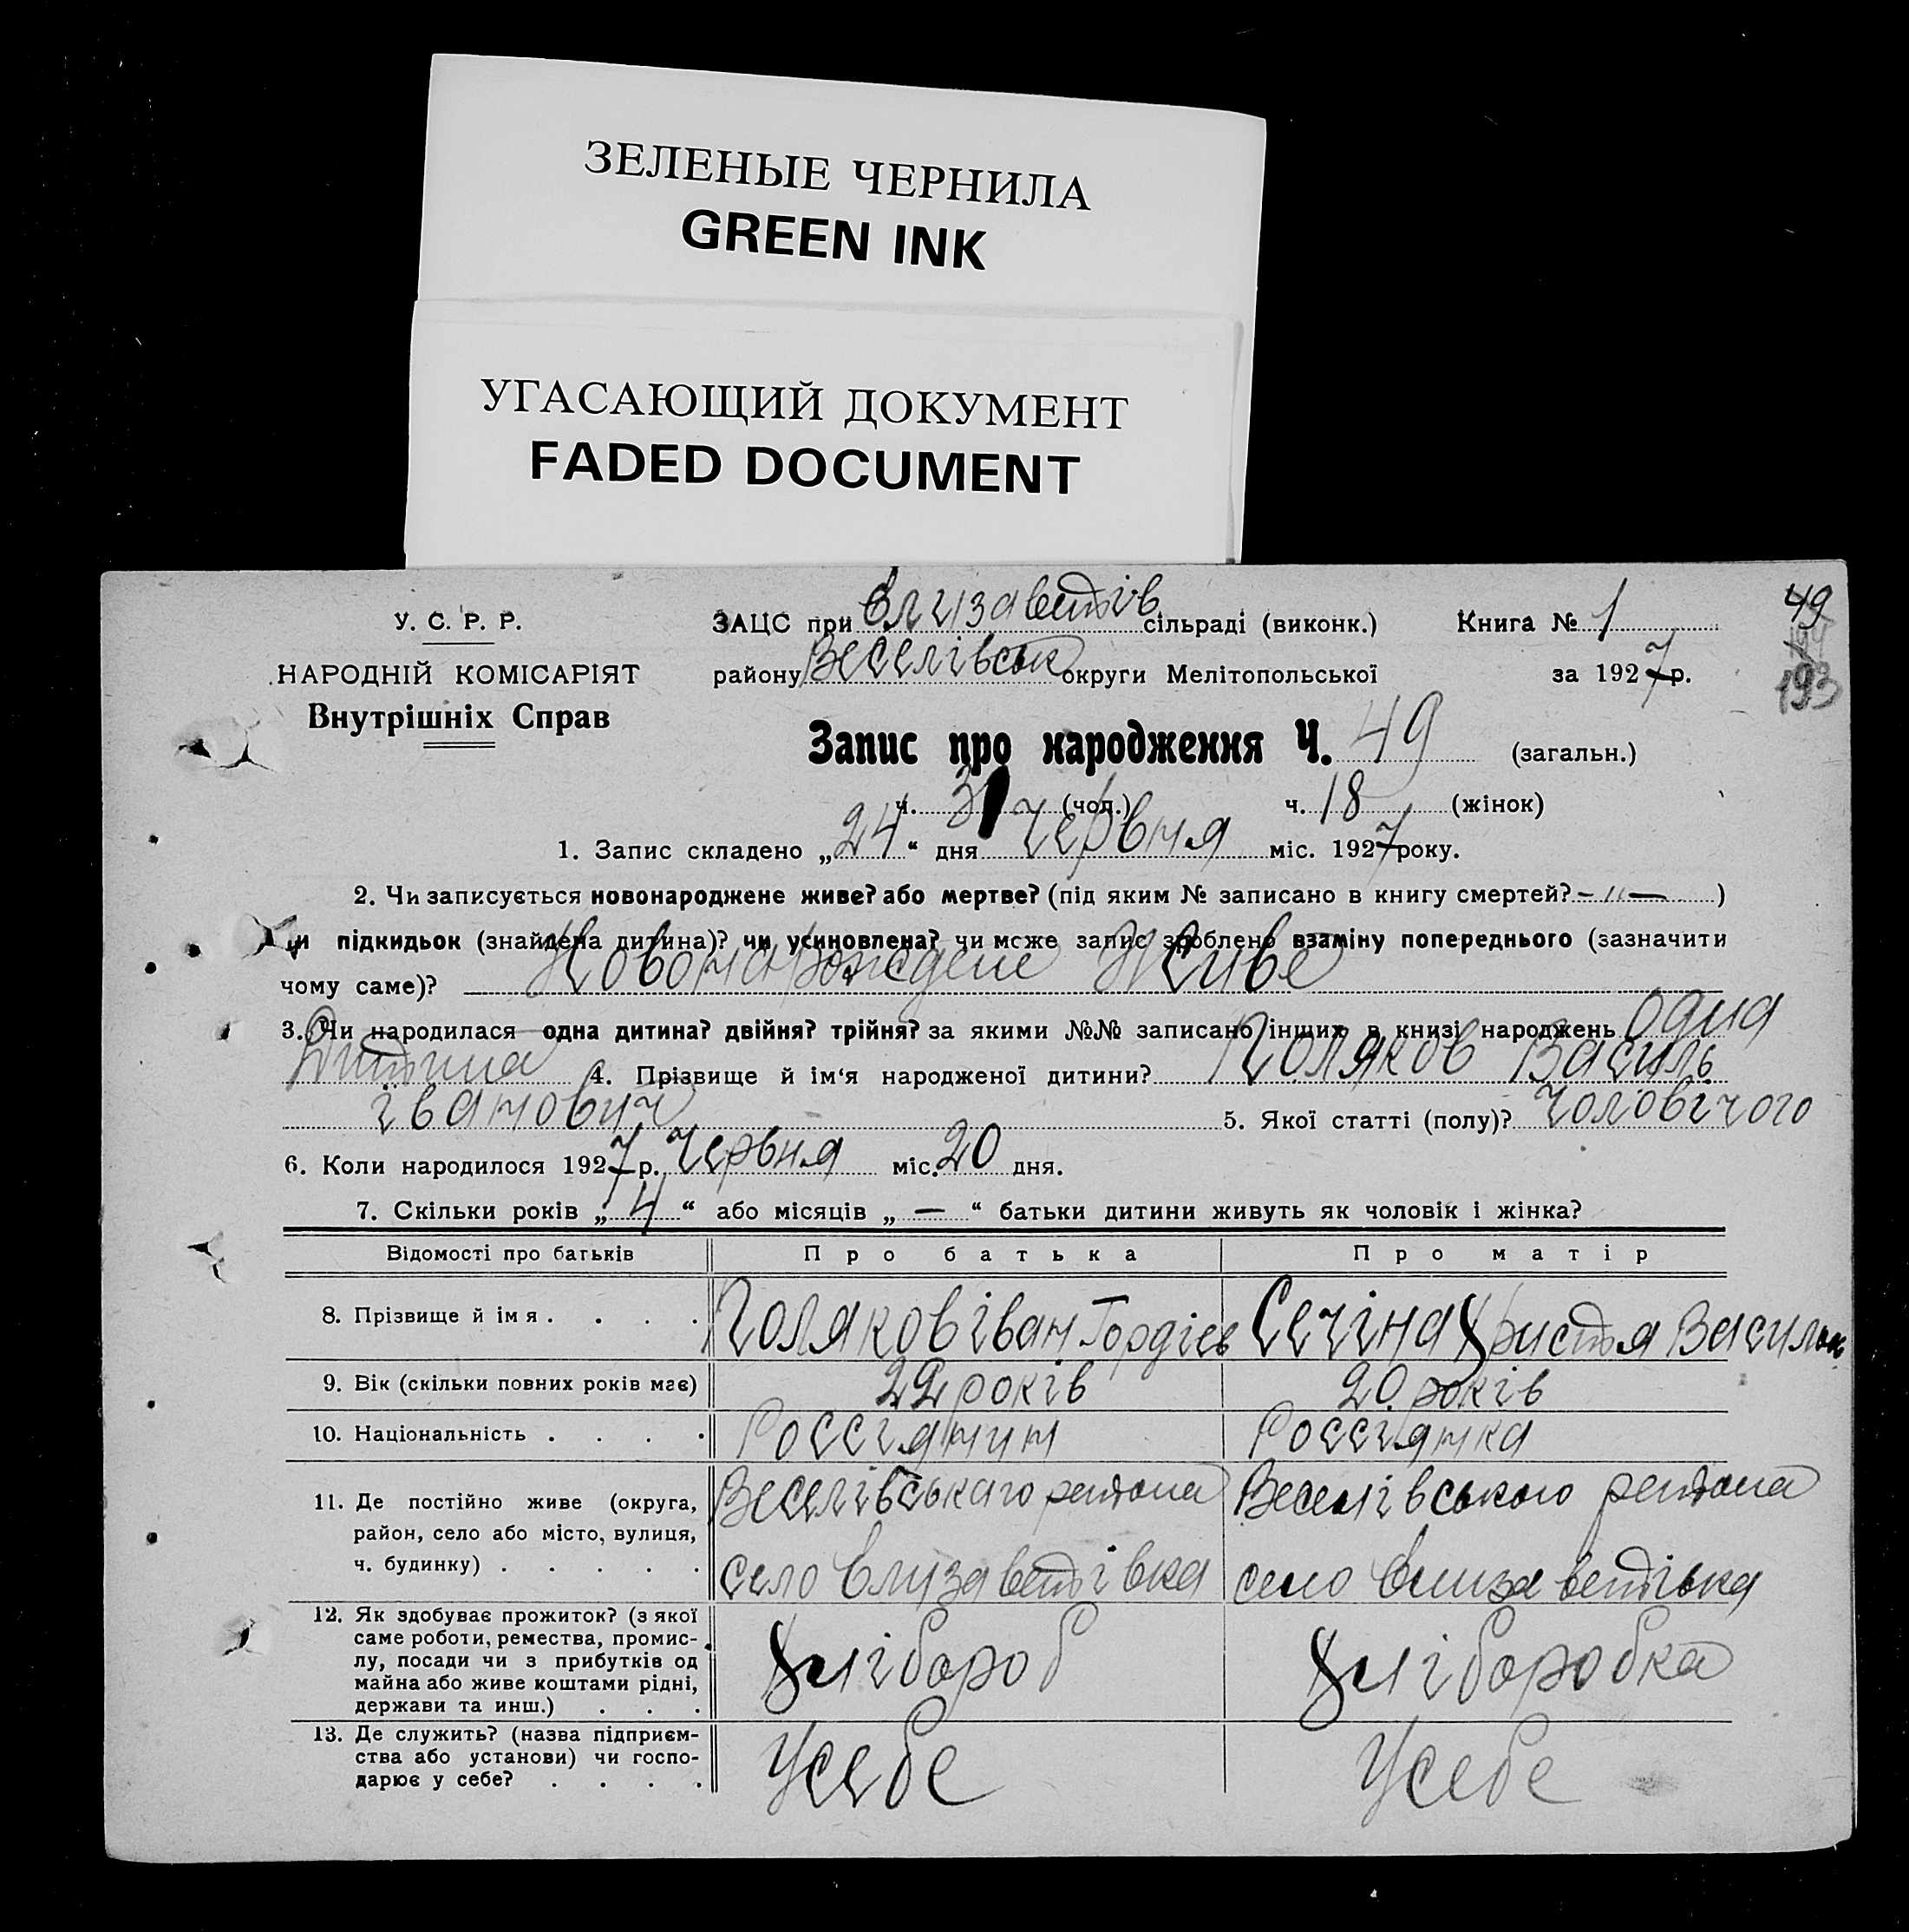 ЗЕЛЕНЫЕ ЧЕРНИЛА
GREEN INK
УГАСАЮЩИЙ ДОКУМЕНТ
FADED DOCUMENT
У. С. Р. Р.
НАРОДНІЙ КОМІСАРІЯТ
Внутрішніх Справ
ЗАЦС при Єлизаветів сільраді (виконк.) Книга № 1
49
району Веселівськ округи Мелітопольської за 1927 р.
193
Запис про народження Ч. 49 (загальн.)
ч. 31 (чол.) ч. 18 (жінок)
1. Запис складено „24“ дня Червня міс. 1927 року.
2. Чи записується новонароджене живе? або мертве? (під яким № записано в книгу смертей? – „ — )
чи підкидьок (знайдена дитина)? чи усиновлена? чи може запис зроблено взаміну попереднього (зазначити
чому саме)? Новонарождене Живе
3. Чи народилася одна дитина? двійня? трійня? за якими №№ записано інших в книзі народжень одна
Дитина 4. Прізвище й ім‘я народженої дитини? Поляков Василь
іванович 5. Якої статті (полу)? Чоловічого
6. Коли народилося 1927 р. Червня міс. 20 дня.
7. Скільки років „4“ або місяців „—“ батьки дитини живуть як чоловік і жінка?
Відомості про батьків Про батька Про матір
8. Прізвище й ім я . . . . Поляков іван Гордієв Сечіна Христя Васильов
9. Вік (скільки повних років має) 22 років 20 років
10. Національність . . . . Россіянин Россіянка
11. Де постійно живе (округа, Веселівськаго рентона Веселівського рентона
район, село або місто, вулиця,
ч. будинку) . . . . . село Єлизаветівка село Єлизаветівка
12. Як здобуває прожиток? (з якої
саме роботи, ремества, промис-
лу, посади чи з прибутків од Хлібороб Хліборобка
майна або живе коштами рідні,
держави та инш.) . . .
13. Де служить? (назва підприєм-
ства або установи) чи госпо- Усебе Усебе
дарює у себе? . . . .